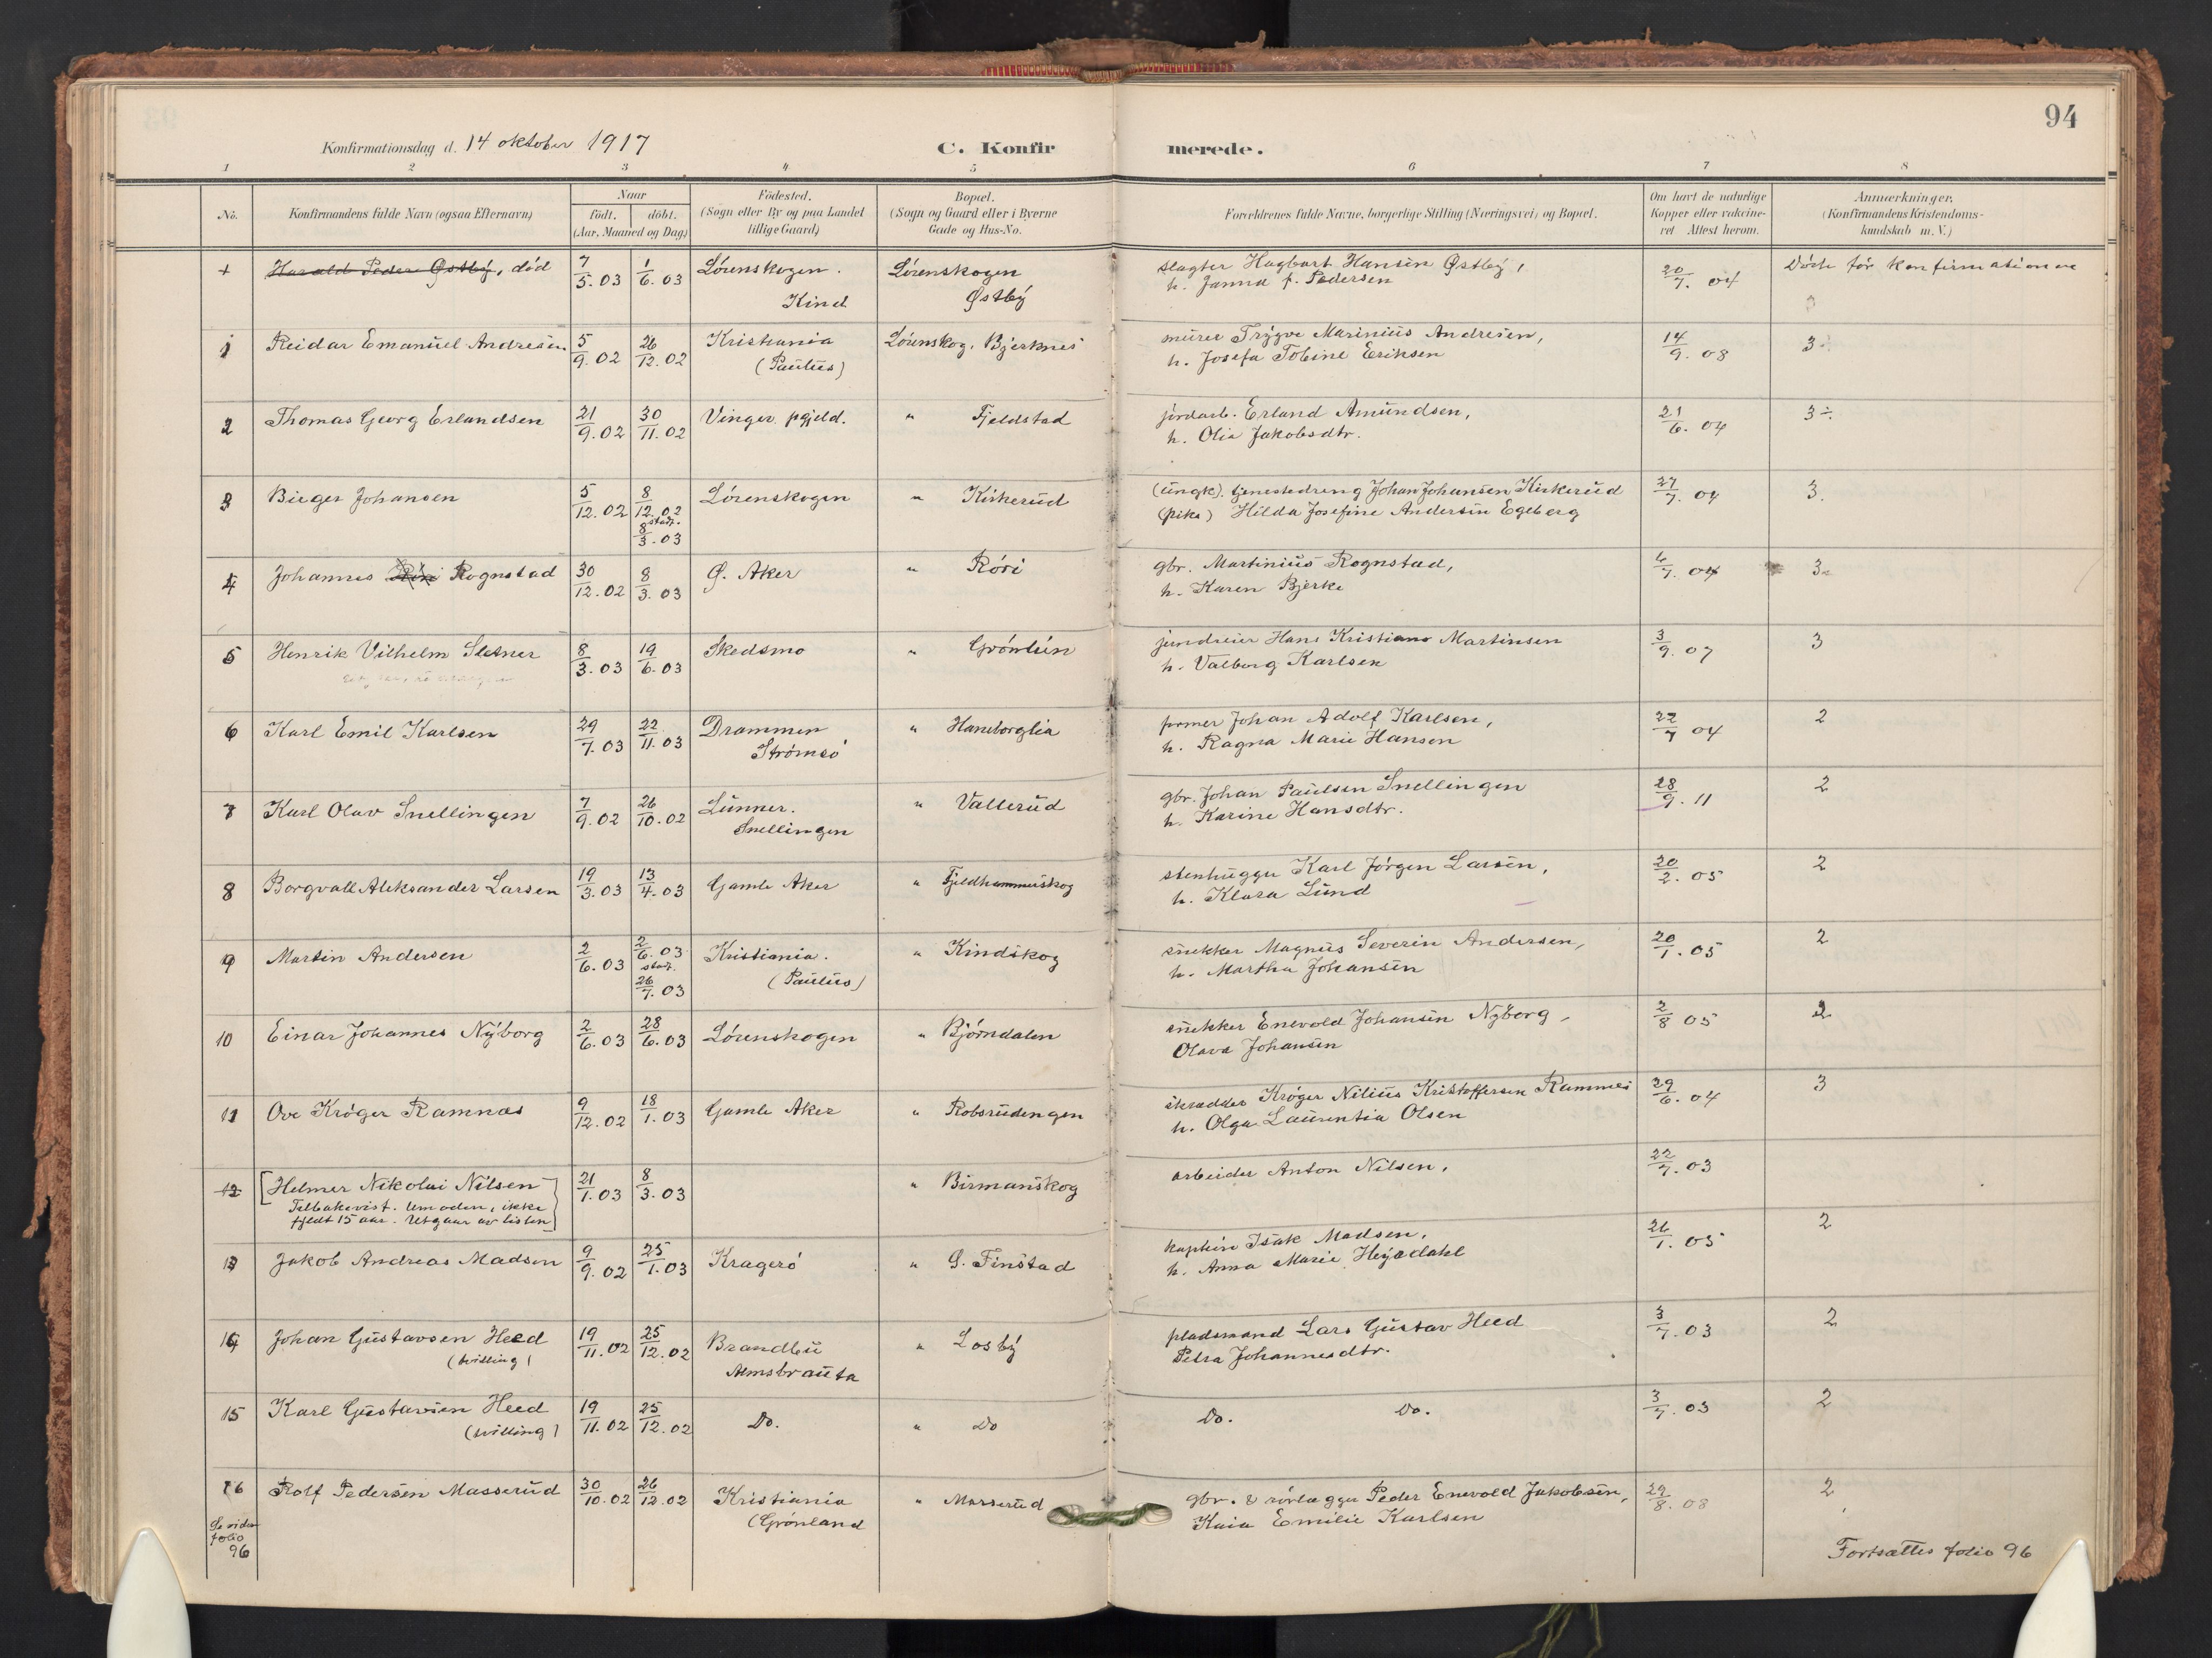 94
Konfirmationsdag d. 14 oktober 1917
C. Konfirmerede.
1 2 3 4 5 6 7 8
No.
Konfirmandens fulde Navn (ogsaa Efternavn)
Naar
födt. döbt.
(Aar, Maaned og Dag)
Födested.
(Sogn eller By og paa Landet
tillige Gaard)
Bopæl.
(Sogn og Gaard eller i Byerne
Gade og Hus-No.
Forældrenes fulde Navne, borgerlige Stilling (Næringsvei) og Bopæl.
Om havt de naturlige
Kopper eller vaccine-
ret Attest herom.
Anmærkninger.
(Konfirmandens Kristendoms-
kundskab m. V.)
+ Harald Peder Østbý, död 7/5.03 1/6.03 Lörenskogen. Lörenskogen slagter Hagbart Hansen Østbý, 20/7.04 Döde för konfirmationen
Kind Østbý h. Janna f. Pedersen
1 Reidar Emanuel Andresen 5/9.02 26/12.02 Kristiania Lörenskog. Bjerknes murer Trygve Marinius Andresen, 14/9.08 3÷
(Paulus) h. Josefa Tobine Eriksen
2 Thomas Georg Erlandsen 21/9.02 30/11.02 Vinger pgjeld. " Fjeldstad jordarb. Erland Amundsen, 21/6.04 3÷
h. Olia Jakobsdtr.
3 Birger Johansen 5/12.02 8/12.02 Lörenskogen " Kirkerud (ungk). tjenestedreng Johan Johansen Kirkerud 27/7.04 3.
stadf.
8/3.03 (pike) Hilda Josefine Andersen Egeberg
4 Johannes Rognstad 30/12.02 8/3.03 Ø. Aker " Röri gbr. Martinius Rognstad, 4/7.04 3
h. Karen Bjerke
5 Henrik Vilhelm Sletner 8/3.03 19/6.03 Skedsmo " Grönlün jerndreier Hans Kristiano Martinsen 3/9.07 3
h. Valborg Karlsen
6 Karl Emil Karlsen 29/7.03 22/11.03 Drammen " Haneborglia former Johan Adolf Karlsen, 22/7 04 2
Strömsö h. Ragna Marie Hansen
7 Karl Olav Snellingen 7/9.02 26/10.02 Lunner. " Vallerud gbr. Johan Paulsen Snellingen 28/9.11 2
Snellingen h. Karine Hansdtr.
8 Borgvall Aleksander Larsen 19/3.03 13/4.03 Gamle Aker " Fjeldhammerskog stenhugger Karl Jörgen Larsen, 20/2.05 2
h. Klara Lund
9 Martin Andersen 2/6.03 2/6.03 Kristiania. " Kindskog snekker Magnus Severin Andersen, 20/1.05 2
stadf.
26/7.03 (Paulus) h. Martha Johansen
10 Einar Johannes Nyborg 2/6.03 28/6.03 Lörenskogen " Björndalen snekker Enevold Johansen Nyborg 2/8 05 2
Olava Johansen
11 Ove Kröger Ramnæs 9/12.02 18/1.03 Gamle Aker " Robsrudengen skrædder Kröger Nilius Kristoffersen Ramnæs 29/6.04 3
h. Olga Laurentia Olsen
12 [Helmer Nikolai Nilsen 21/1.03 8/3.03 " Birmanskog arbeider Anton Nilsen, 22/7.03
Tilbakevist. Umoden, ikke
fyldt 15 aar. Utgaar av listen]
13 Jakob Andreas Madsen 9/9.02 25/1.03 Kragerö " S. Finstad kaptein Isak Madsen, 26/1.05 2
h. Anna Marie Heyerdahl
14 Johan Gustavsen Heed 19/11.02 25/12.02 Brandbu " Losbý pladsmand Lars Gustav Heed 3/7.03 2
(tvilling) Almsbrauta Petra Johannesdtr.
15 Karl Gustavsen Heed 19/11.02 25/12.02 Do. " Do Do. Do. 3/7.03 2
(tvilling)
16 Rolf Pedersen Masserud 30/10.02 26/12.02 Kristiania " Masserud gbr. & rörlægger Peder Enevold Jakobsen, 29/8.08 2
(Grönland Kaia Emilie Karlsen
Se videre
folio
96
Fortsættes folio 96